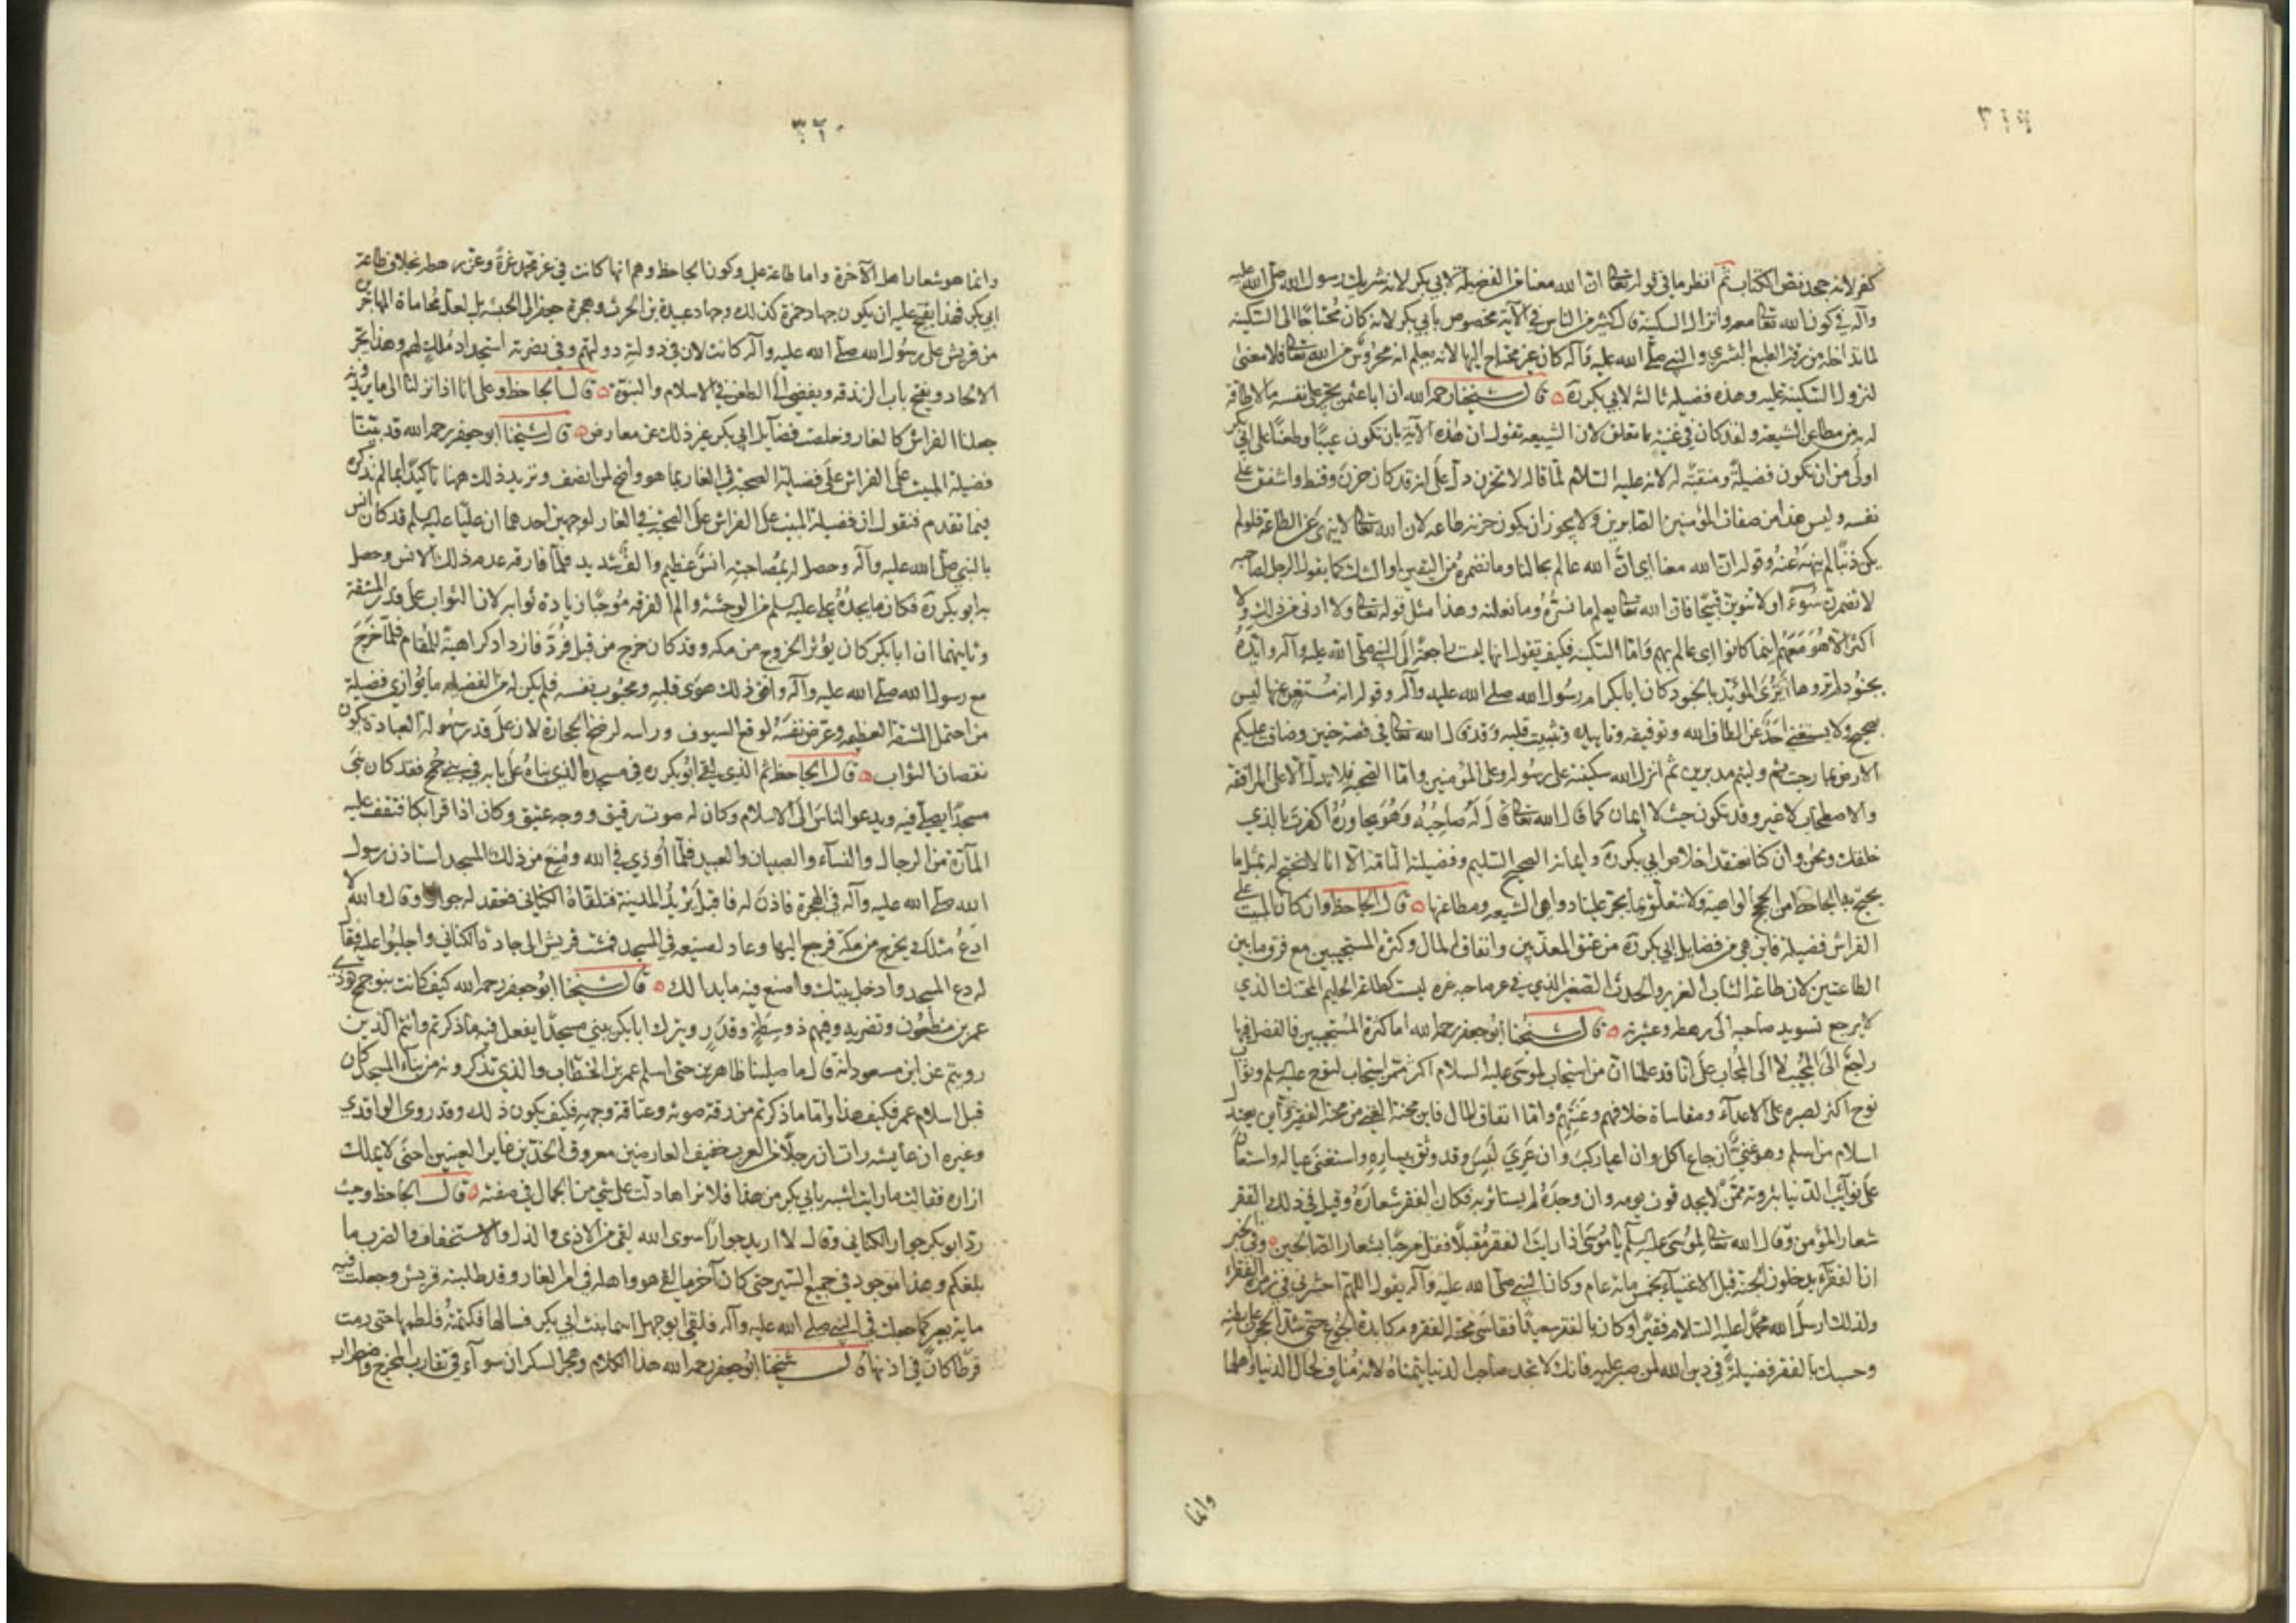 ٣١٩
كفر لانه جحد نص الكتاب ثم انظر ما في قوله تعالى ان الله معنا من الفضيلة لابي بكر لانه شريك رسول الله صلى الله عليه
وآله في كون الله تعالى معه وانزال السكينة قال كثير من الناس في الآية مخصوص بابي بكر لانه كان محتاجا الى السكينة
لما تداخله من رقة الطبع البشري والنبي صلى الله عليه وآله كان غير محتاج اليها لانه يعلم انه محروس من الله تعالى فلا معنى
لنزول السكينة عليه وهذه فضيلة ثالثة لابي بكر ره قال شيخنا رحمه الله ان ابا عثمن يجر على نفسه ما لا طاقة
له به من مطاعن الشيعة ولقد كان في غنية عما تعلق لان الشيعة تقول ان هذه الآية بان تكون عيبا وطعنا على ابي بكر
اولى من ان تكون فضيلة ومنقبة له لانه عليه السلام لما قال له لا تحزن دل على انه قد كان حزن وقنط واشفق على
نفسه وليس هذا من صفات المؤمنين الصابرين ولا يجوز ان يكون حزنه طاعة لان الله تعالى لا ينهى عن الطاعة فلو لم
يكن ذنبا لم ينه عنه وقوله ان الله معنا اي ان الله عالم بحالنا وما نضمره من اليقين او الشك كما يقول الرجل لصاحبه
لا تضمرن سوءا ولا تنوين قبيحا فان الله تعالى يعلم ما نسره وما نعلنه وهذا مثل قوله تعالى ولا ادنى من ذلك ولا
اكثر الا هو معهم اينما كانوا اي عالم بهم واما السكينة فكيف تقول انها ليست راجعة الى النبي صلى الله عليه وآله وايده
بجنود لم تروها اترى المؤيد بالجنود كان ابا بكر ام رسول الله صلى الله عليه وآله وقوله انه مستغن عنها ليس
بصحيح ولا يستغني احد عن الطاف الله وتوفيقه وتاييده وتثبيت قلبه وقد قال الله تعالى في قصة حنين وضاقت عليكم
الارض بما رحبت ثم وليتم مدبرين ثم انزل الله سكينته على رسوله وعلى المؤمنين واما الصحبة فلا تدل الا على المرافقة
والاصطحاب لا غير وقد تكون حيث لا ايمان كما قال الله تعالى قال له صاحبه وهو يحاوره اكفرت بالذي
خلقك ونحن وان كنا نعتقد اخلاص ابي بكر ره وايمانه الصحيح السليم وفضيلته التامة الا انا لا نحتج له بمثل ما
يحتج به الجاحظ من الحجج الواهية ولا نتعلق بما يجر علينا دواهي الشيعة ومطاعنها قال الجاحظ وان كان المبيت على
الفراش فضيلة فاين هي من فضايل ابي بكر ره من عتق المعذبين وانفاق المال وكثرة المستجيبين مع فرق ما بين
الطاعتين لان طاعة الشاب الغرير والحدث الصغير الذي في عز صاحبه عزه ليست كطاعة الحليم المحتنك الذي
لا يرجع تسويد صاحبه الى رهطه وعشيرته قال شيخنا ابو جعفر رحمه الله اما كثرة المستجيبين فالفضل فيها
راجع الى المجيب لا الى المجاب على انا قد علمنا ان من استجاب لموسى عليه السلام اكثر ممن استجاب لنوح عليه السلم وثواب
نوح اكثر لصبره على الاعداء ومقاساة خلافهم وعنتهم واما انفاق المال فاين محنة الغني من محنة الفقير واين يعتدل
اسلام من اسلم وهو غني ان جاع اكل وان اعيا ركب وان عري لبس وقد وثق بيساره واستغنى بماله واستعان
على نوائب الدنيا بثروته ممن لا يجد قوت يومه وان وجده لم يستاثر به فكان الفقر شعاره وقيل في ذلك الفقر
شعار المؤمن وقال الله تعالى لموسى عليه السلم يا موسى اذا رايت الفقر مقبلا فقل مرحبا بشعار الصالحين وفي الخبر
ان الفقراء يدخلون الجنة قبل الاغنياء بخمس مائة عام وكان النبي صلى الله عليه وآله يقول اللهم احشرني في زمرة الفقراء
ولذلك ارسل الله محمدا عليه السلام فقيرا وكان بالفقر سعيدا فقاسى محنة الفقر ومكابدة الجوع حتى شد الحجر على بطنه
وحسبك بالفقر فضيلة في دين الله لمن صبر عليه فانك لا تجد صاحب الدنيا يتمناه لانه مناف لحال الدنيا واهلها
وانما
٣٢٠
وانما هو شعار اهل الآخرة واما طاعة علي وكون الجاحظ وهم انها كانت في عز محمد عزه وعز رهطه بخلاف طاعة
ابي بكر فهذا يفتح عليه ان يكون جهاد حمزة كذلك وجهاد عبيدة بن الحرث وهجرة جعفر الى الحبشة بل لعل محاماة المهاجرين
من قريش على رسول الله صلى الله عليه وآله كانت لان في دولته دولتهم وفي نصرته استجداد ملك لهم وهذا يجر
الالحاد ويفتح باب الزندقة ويفضي الى الطعن في الاسلام والنبوة قال الجاحظ وعلى انا اذا نزلنا الى ما يريدونه
جعلنا الفراش كالغار وخلصت فضايل ابي بكر غير ذلك عن معارض قال شيخنا ابو جعفر رحمه الله قد بينا
فضيلة المبيت على الفراش على فضيلة الصحبة في الغار بما هو واضح لمن انصف ونزيد ذلك ههنا تاكيدا بما لم نذكره
فيما تقدم فنقول ان فضيلة المبيت على الفراش على الصحبة في الغار لوجهين احدهما ان عليا عليه السلم قد كان انس
بالنبي صلى الله عليه وآله وحصل له بمصاحبته انس عظيم والف شديد فلما فارقه عدم ذلك الانس وحصل
به ابو بكر ره فكان ما يجده علي عليه السلم من الوحشة والم الفرقة موجبا زيادة ثوابه لان الثواب على قدر المشقة
وثانيهما ان ابا بكر كان يؤثر الخروج من مكة وقد كان خرج من قبل فردا فازداد كراهية للمقام فلما خرج
مع رسول الله صلى الله عليه وآله وافق ذلك هوى قلبه ومحبوب نفسه فلم يكن له من الفضيلة ما يوازي فضيلة
من احتمل المشقة العظيمة وعرض نفسه لوقع السيوف وراسه لرضخ الحجارة لان على قدر سهولة العبادة يكون
نقصان الثواب قال الجاحظ ثم الذي لقي ابو بكر ره في مسجده الذي بناه على بابه في بني جمح فقد كان بنى
مسجدا يصلي فيه ويدعو الناس الى الاسلام وكان له صوت رقيق ووجه عتيق وكان اذا قرا بكا فتقف عليه
المارة من الرجال والنساء والصبيان والعبيد فلما اوذي في الله ومنع من ذلك المسجد استاذن رسول
الله صلى الله عليه وآله في الهجرة فاذن له فاقبل يريد المدينة فتلقاه الكناني فعقد له جوارا وقال والله لا
ادع مثلك يخرج من مكة فرجع اليها وعاد لصنيعه في المسجد فمشت قريش الى جاره الكناني واجلبوا عليه فقال
له دع المسجد وادخل بيتك واصنع فيه ما بدا لك قال شيخنا ابو جعفر رحمه الله كيف كانت بنو جمح توذي
عمر بن مظعون وتضربه وفيهم ذو سطوة وقدر ويترك ابا بكر يبني مسجدا يفعل فيه ما ذكرتم وانتم الذين
رويتم عن ابن مسعود انه قال ما صلينا ظاهرين حتى اسلم عمر بن الخطاب والذي تذكرونه من بناء المسجد كان
قبل اسلام عمر فكيف هذا واما ما ذكرتم من رقة صوته وعتاقة وجهه فكيف يكون ذلك وقد روى الواقدي
وغيره ان عايشة رات رجلا من العرب خفيف العارضين معروق الخدين غاير العينين احنى لا يملك
ازاره فقالت ما رايت اشبه بابي بكر من هذا فلا نراها دلت على شي من الجمال في صفته قال الجاحظ وحيث
رد ابو بكر جوار الكناني وقال لا اريد جوارا سوى الله لقي من الاذى والذل والاستخفاف والضرب ما
بلغكم وهذا موجود في جميع السير حتى كان آخر ما لقي هو واهله في امر الغار وقد طلبته قريش وجعلت فيه
ماية بعير كما جعلت في النبي صلى الله عليه وآله فلقي ابو جهل اسما بنت ابي بكر فسالها فكتمته فلطمها حتى رمت
قرطا كان في اذنها قال شيخنا ابو جعفر رحمه الله هذا الكلام وهجر السكران سواء في تقارب المخرج واضطراب